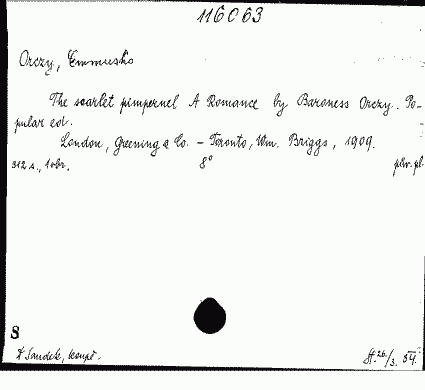 116063
Orczy, Emmuska
The scarlet pimpernel A Romance by Baroness Orczy. Po-
pular ed.
London, Greening & Co. - Toronto, Wm. Briggs, 1909.
312 s., 1 obr. 8° plw. pl.
8
St. 26./3. 54.